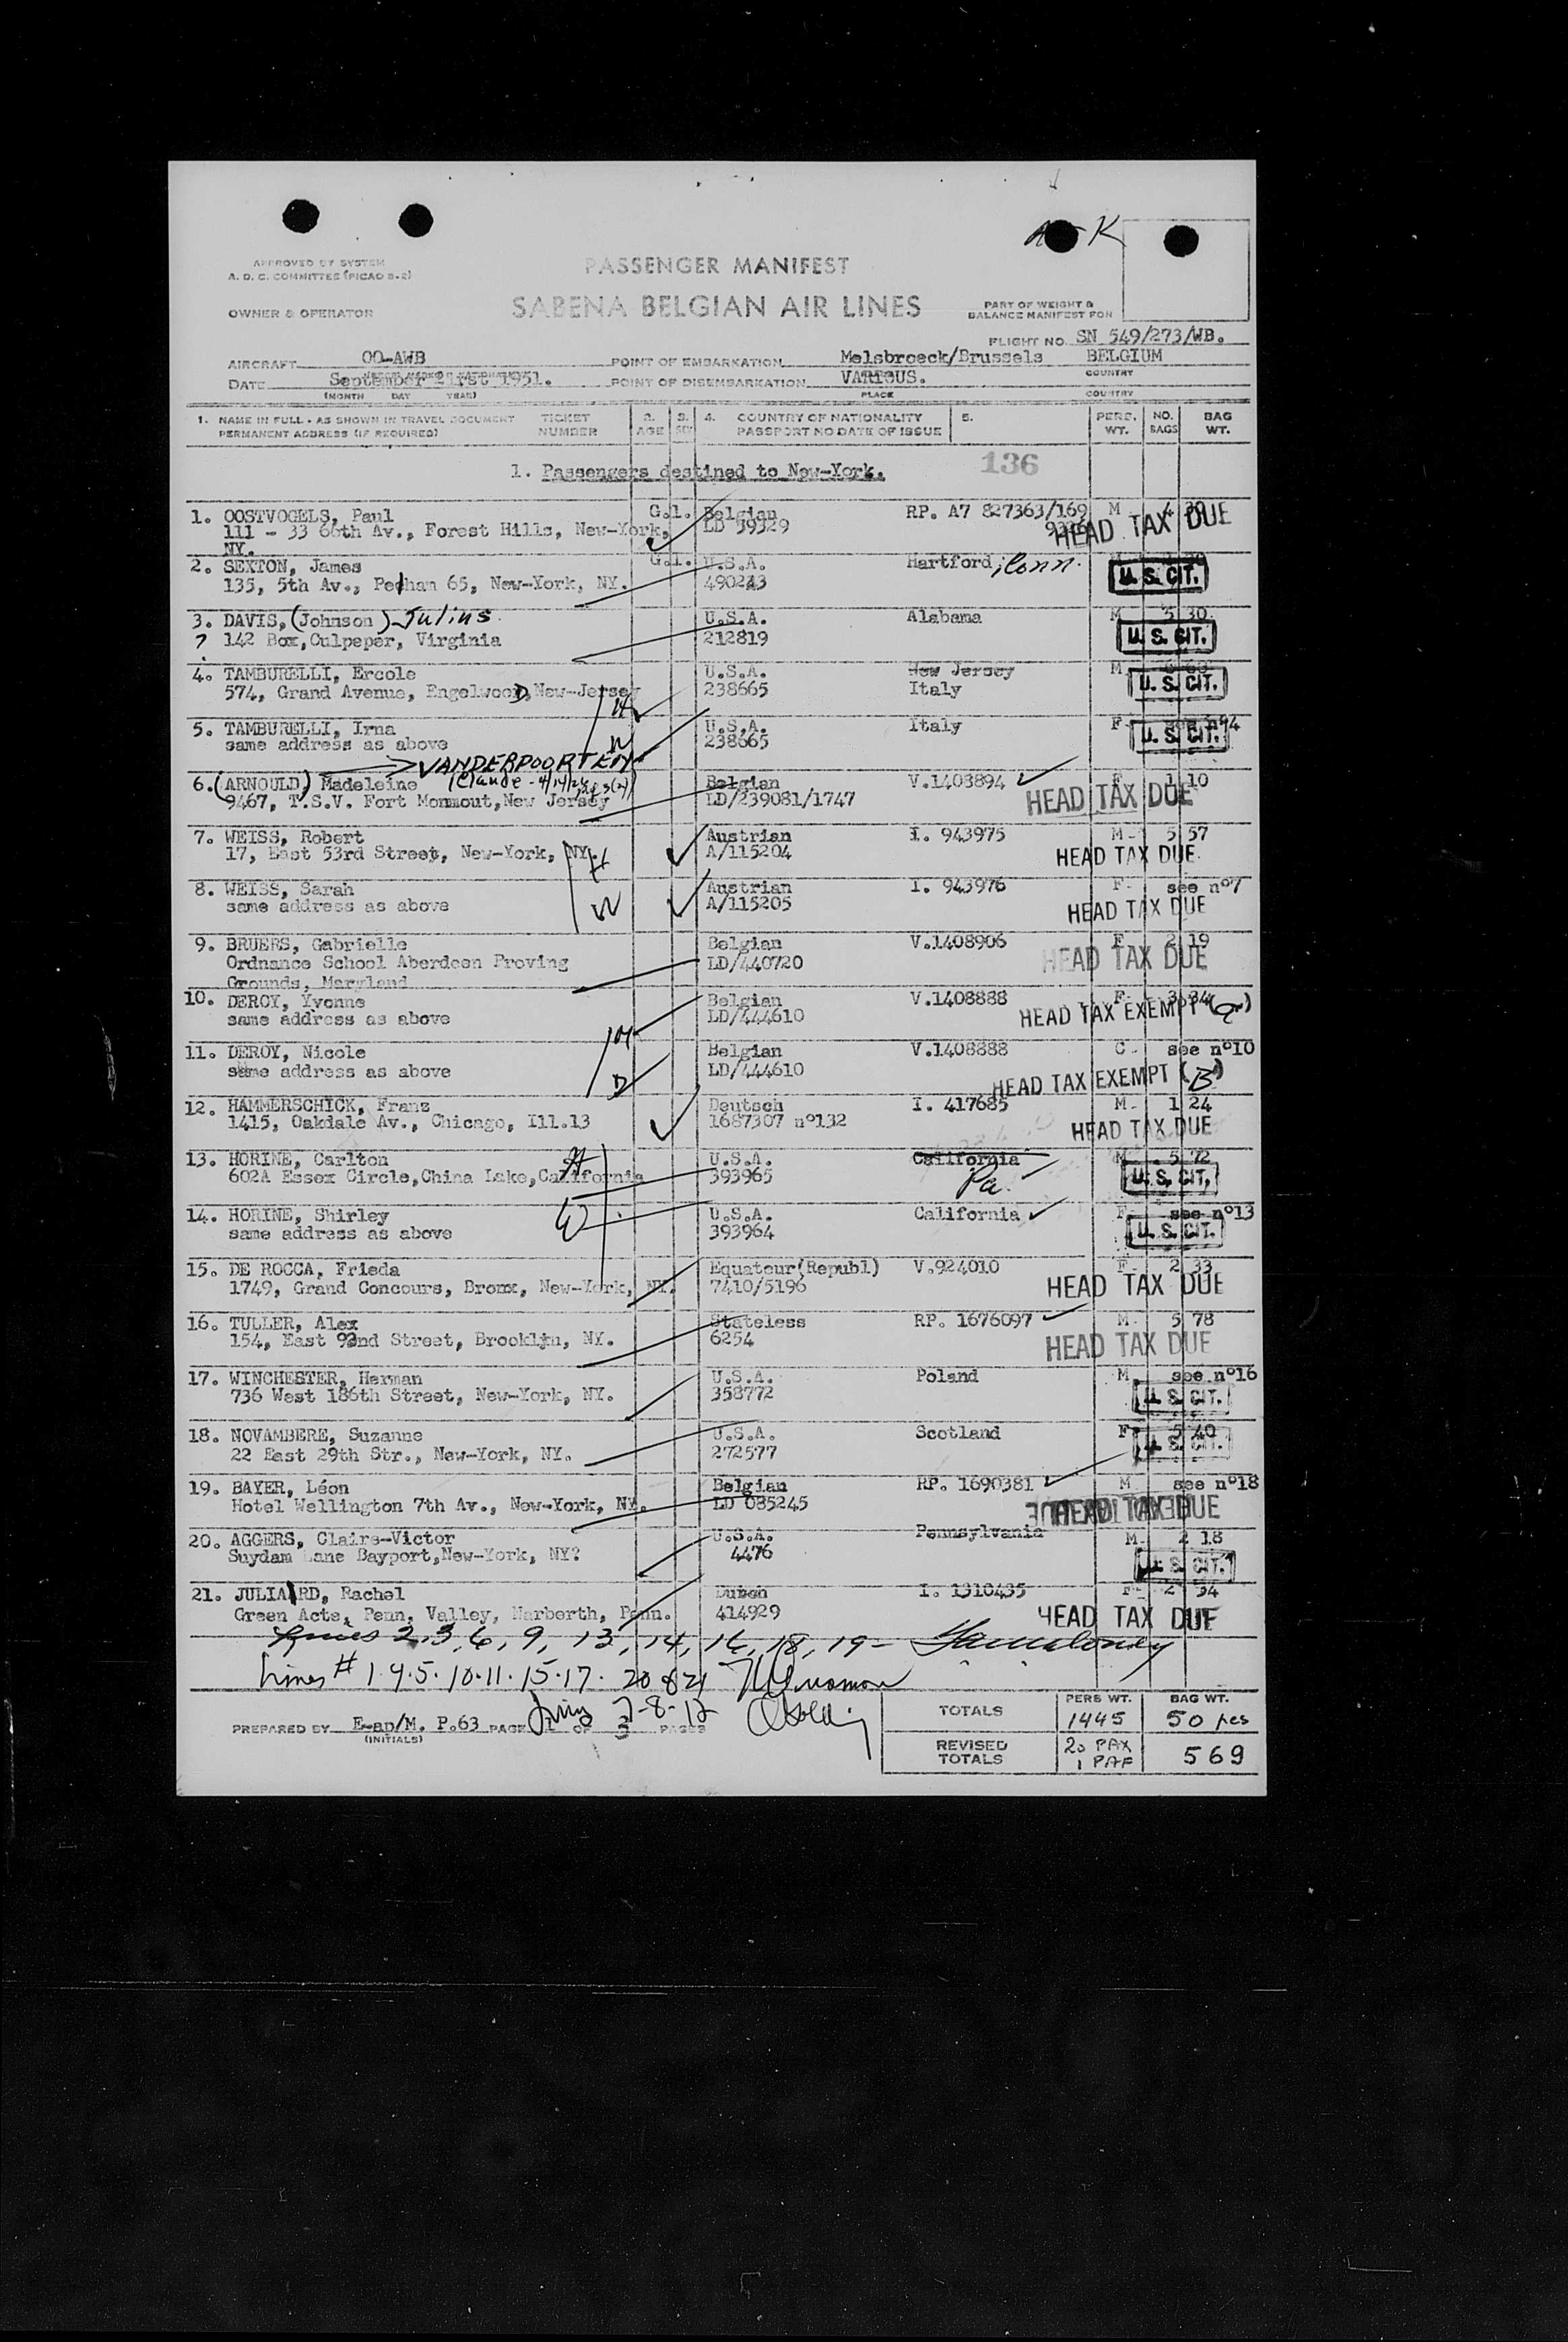 A K
APPROVED BY SYSTEM
A. D. C. COMMITTEE (PICAO B-2)
PASSENGER MANIFEST
OWNER & OPERATOR
SABENA BELGIAN AIR LINES
PART OF WEIGHT &
BALANCE MANIFEST FOR
FLIGHT NO. SN 549/273/WB.
AIRCRAFT OO-AWB POINT OF EMBARKATION Melsbroeck/Brussels BELGIUM
COUNTRY
DATE September 21rst 1951. POINT OF DISEMBARKATION VARIOUS.
(MONTH DAY YEAR) PLACE COUNTRY
1. NAME IN FULL - AS SHOWN IN TRAVEL DOCUMENT TICKET 2. 3. 4. COUNTRY OF NATIONALITY 5. PERS. NO. BAG
PERMANENT ADDRESS (IF REQUIRED) NUMBER AGE SEX PASSPORT NO DATE OF ISSUE WT. BAGS WT.
1. Passengers destined to New-York. 136
1. OOSTVOGELS, Paul G.l. Belgian RP. A7 827363/169 M
111 - 33 66th Av., Forest Hills, New-York, LD 39329 HEAD TAX DUE
NY.
2. SEXTON, James G.l. U.S.A. Hartford, Conn.
135, 5th Av., Pelhan 65, New-York, NY. 490243 U. S. CIT.
3. DAVIS, (Johnson) Julius U.S.A. Alabama M 5 30
? 142 Box, Culpeper, Virginia 212819 U. S. CIT.
4. TAMBURELLI, Ercole U.S.A. New Jersey M
574, Grand Avenue, EngelwooD, New-Jersey 238665 Italy U. S. CIT.
H
5. TAMBURELLI, Irna U.S.A. Italy F see n°4
same address as above W 238665 U. S. CIT.
VANDERPOORTEN
6. (ARNOULD) Madeleine (Claude Belgian V.1408894 F 1 10
9467, T.S.V. Fort Monmout, New Jersey LD/239081/1747 HEAD TAX DUE
7. WEISS, Robert Austrian I. 943975 M 5 57
17, East 53rd Street, New-York, NY. H A/115204 HEAD TAX DUE
8. WEISS, Sarah Austrian I. 943976 F see n°7
same address as above W A/115205 HEAD TAX DUE
9. BRUERS, Gabrielle Belgian V.1408906 F 2 19
Ordnance School Aberdeen Proving LD/440720 HEAD TAX DUE
Grounds, Maryland
10. DEROY, Yvonne Belgian V.1408888 F 3 34
same address as above M LD/444610 HEAD TAX EXEMPT
11. DEROY, Nicole Belgian V.1408888 C see n°10
same address as above D LD/444610 HEAD TAX EXEMPT (B)
12. HAMMERSCHICK, Franz Deutsch I. 417685 M 1 24
1415, Oakdale Av., Chicago, Ill.13 1687307 n°132 HEAD TAX DUE
13. HORINE, Carlton H U.S.A. California M 5 72
602A Essex Circle, China Lake, California 393965 Pa. U. S. CIT.
14. HORINE, Shirley W U.S.A. California F see n°13
same address as above 393964 U. S. CIT.
15. DE ROCCA, Frieda Equateur(Republ) V.924010 F 2 33
1749, Grand Concours, Bronx, New-York, NY. 7410/5196 HEAD TAX DUE
16. TULLER, Alex Stateless RP. 1676097 M 5 78
154, East 92nd Street, Brooklyn, NY. 6254 HEAD TAX DUE
17. WINCHESTER, Herman U.S.A. Poland M see n°16
736 West 186th Street, New-York, NY. 358772 U. S. CIT.
18. NOVAMBERE, Suzanne U.S.A. Scotland F 5 40
22 East 29th Str., New-York, NY. 272577 U. S. CIT.
19. BAYER, Léon Belgian RP. 1690381 M see n°18
Hotel Wellington 7th Av., New-York, NY. LD 085245 HEAD TAX DUE
20. AGGERS, Claire-Victor U.S.A. Pennsylvania M 2 18
Suydam Lane Bayport, New-York, NY? 4476 U. S. CIT.
21. JULIARD, Rachel I. 1310435 F 2 34
Green Acts, Penn, Valley, Narberth, Penn. 414929 HEAD TAX DUE
Lines 2, 3, 6, 9, 13, 14, 16, 18, 19 -
Lines # 1.4.5.10.11.15.17. 20 & 21
Lines 7-8-12
PREPARED BY E-ap/M. P.63 PAGE 1 OF 3 PAGES
(INITIALS)
TOTALS PERS WT. BAG WT.
1445 50 pcs
REVISED 20 PAX
TOTALS 1 PAF 569